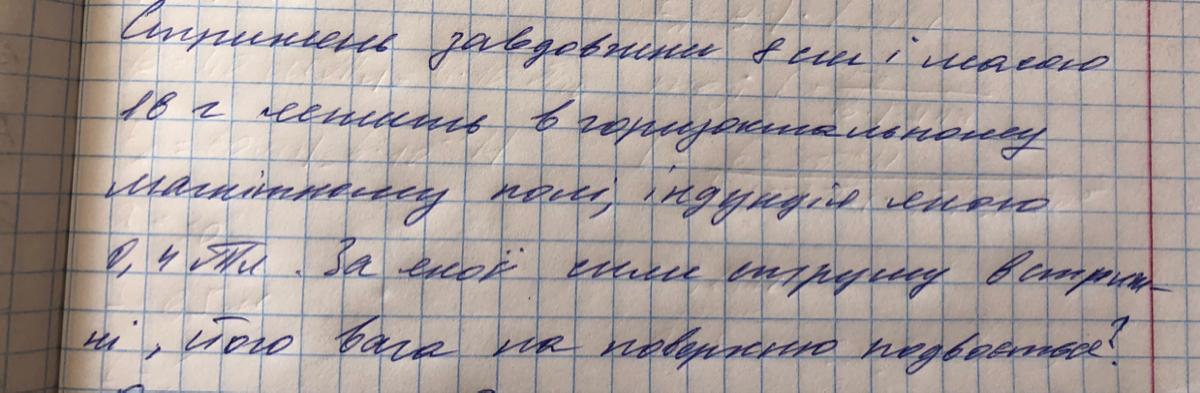 Стрижень завдовжки 8 см і масою
18 г лежить в горизонтальному
магнітному полі, індукція якого
0,4 Тл. За якої сили струму в стриж-
ні, його вага на поверхню подвоється?